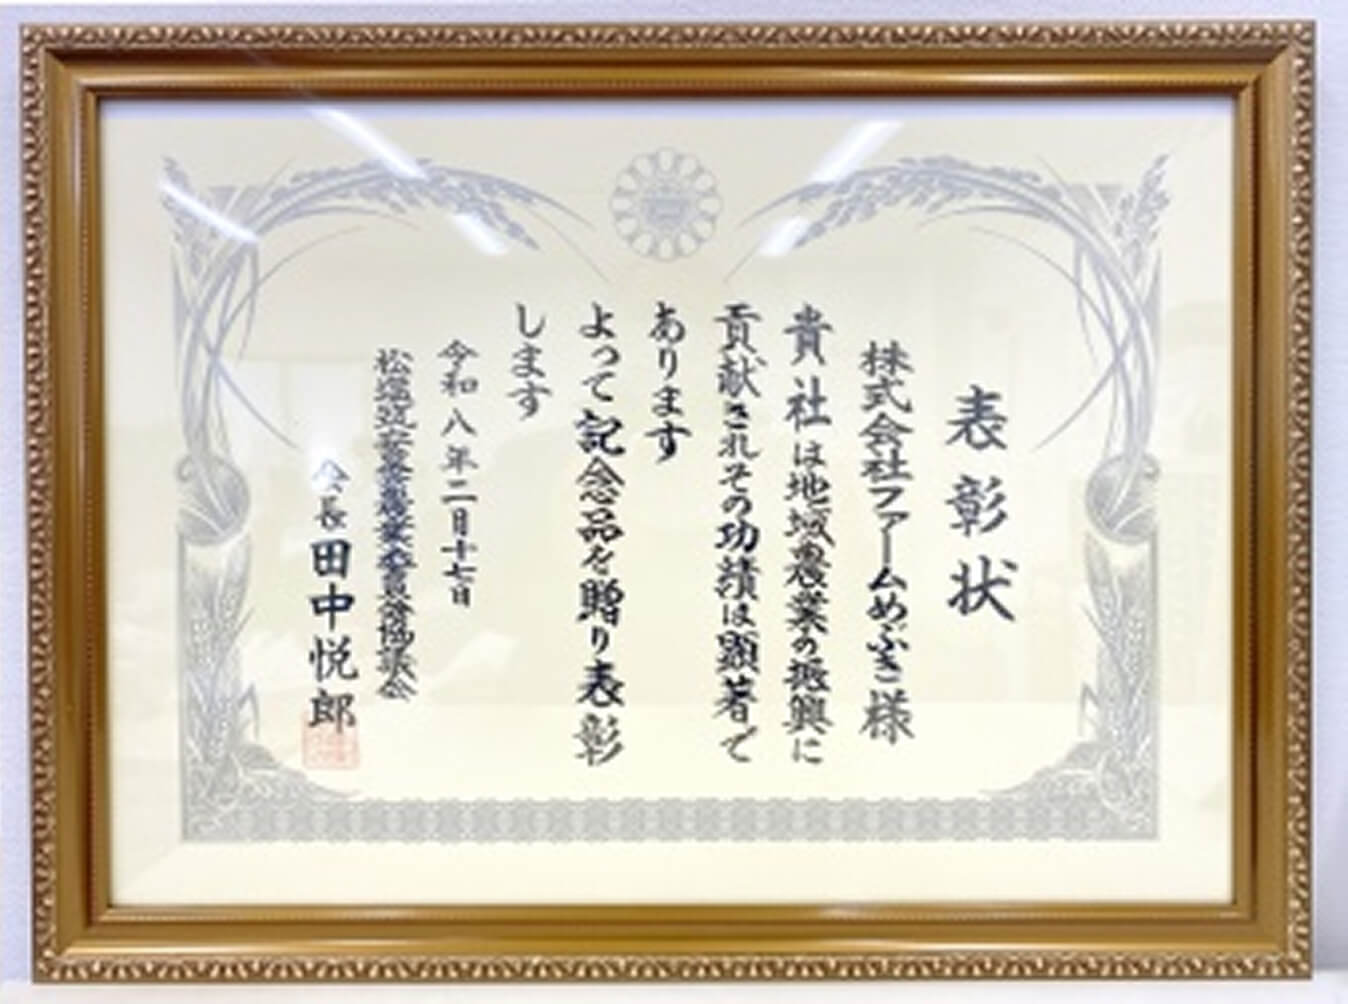 表彰状
株式会社ファームめぶき様
貴社は地域農業の振興に
貢献されその功績は顕著で
あります
よって記念品を贈り表彰
します
令和八年二月十七日
松塩筑安曇農業委員会協議会
会長 田中悦郎